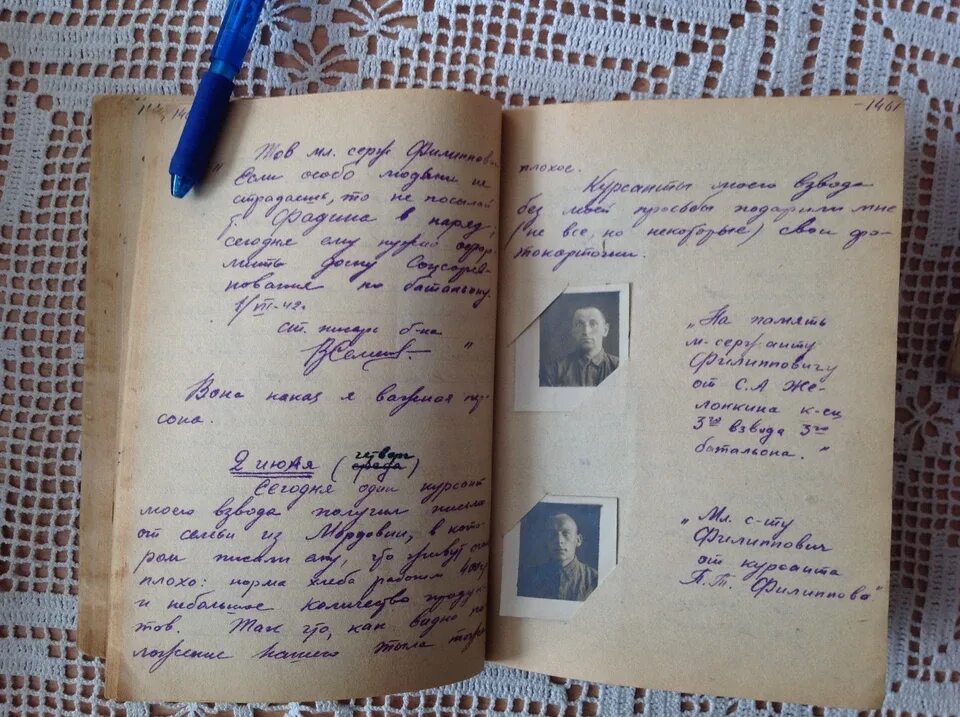 146
"Тов мл. серж. Филиппови
Если особо людьми не
страдаешь, то не посылай
т. Фадина в наряд,
сегодня ему нужно офор
мить доску Соцсорев
нования по батальону.
1/VII-42г.
ст. писарь б-на
"
Вона какая я важная пер
сона.
2 июля (четверг
среда)
Сегодня один курсант
моего взвода получил письмо
от семьи из Мордовии, в кото
ром писали ему, что живут очень
плохо: норма хлеба рабочим 400гр
и небольшое количество продук
тов. Так что, как видно по
ложение нашего тыла тоже
-1461
плохое.
Курсанты моего взвода
без моей просьбы подарили мне
(не все, но некоторые) свои фо-
токарточки.
"На память
м-сержанту
Филипповичу
от С.А Же-
лонкина к-си
3го взвода 3го
батальона."
"Мл. с-ту
Филиппович
от курсанта
П.Т. Филиппова"